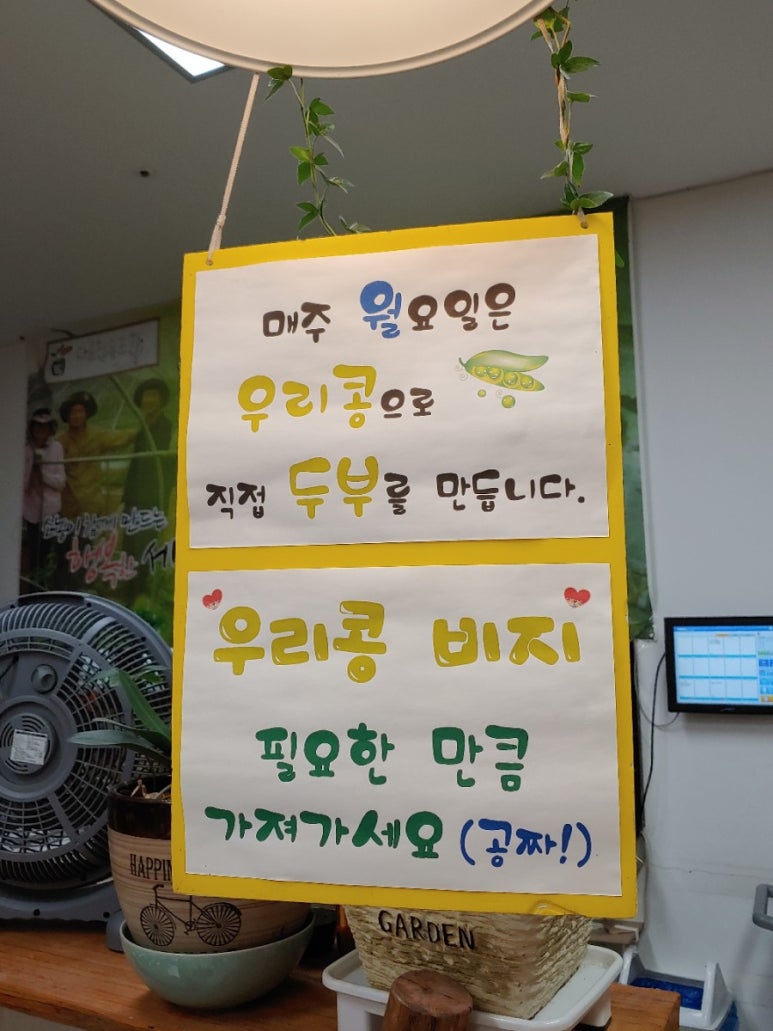 매주 월요일은
우리콩으로
직접 두부를 만듭니다.
우리콩 비지
필요한 만큼
가져가세요 (공짜!)
함께 만드는
행복한
HAPPIN
GARDEN